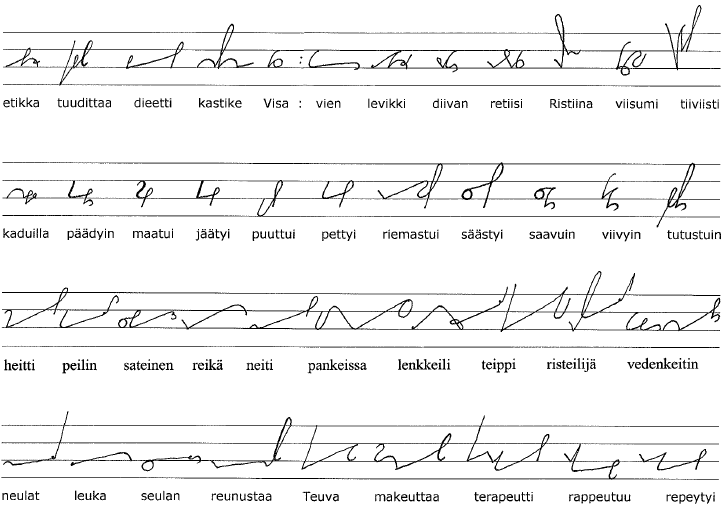 etikka tuudittaa dieetti kastike Visa : vien levikki diivan retiisi Ristiina viisumi tiiviisti
kaduilla päädyin maatui jäätyi puuttui pettyi riemastui säästyi saavuin viivyin tutustuin
heitti peilin sateinen reikä neiti pankeissa lenkkeili teippi risteilijä vedenkeitin
neulat leuka seulan reunustaa Teuva makeuttaa terapeutti rappeutuu repeytyi